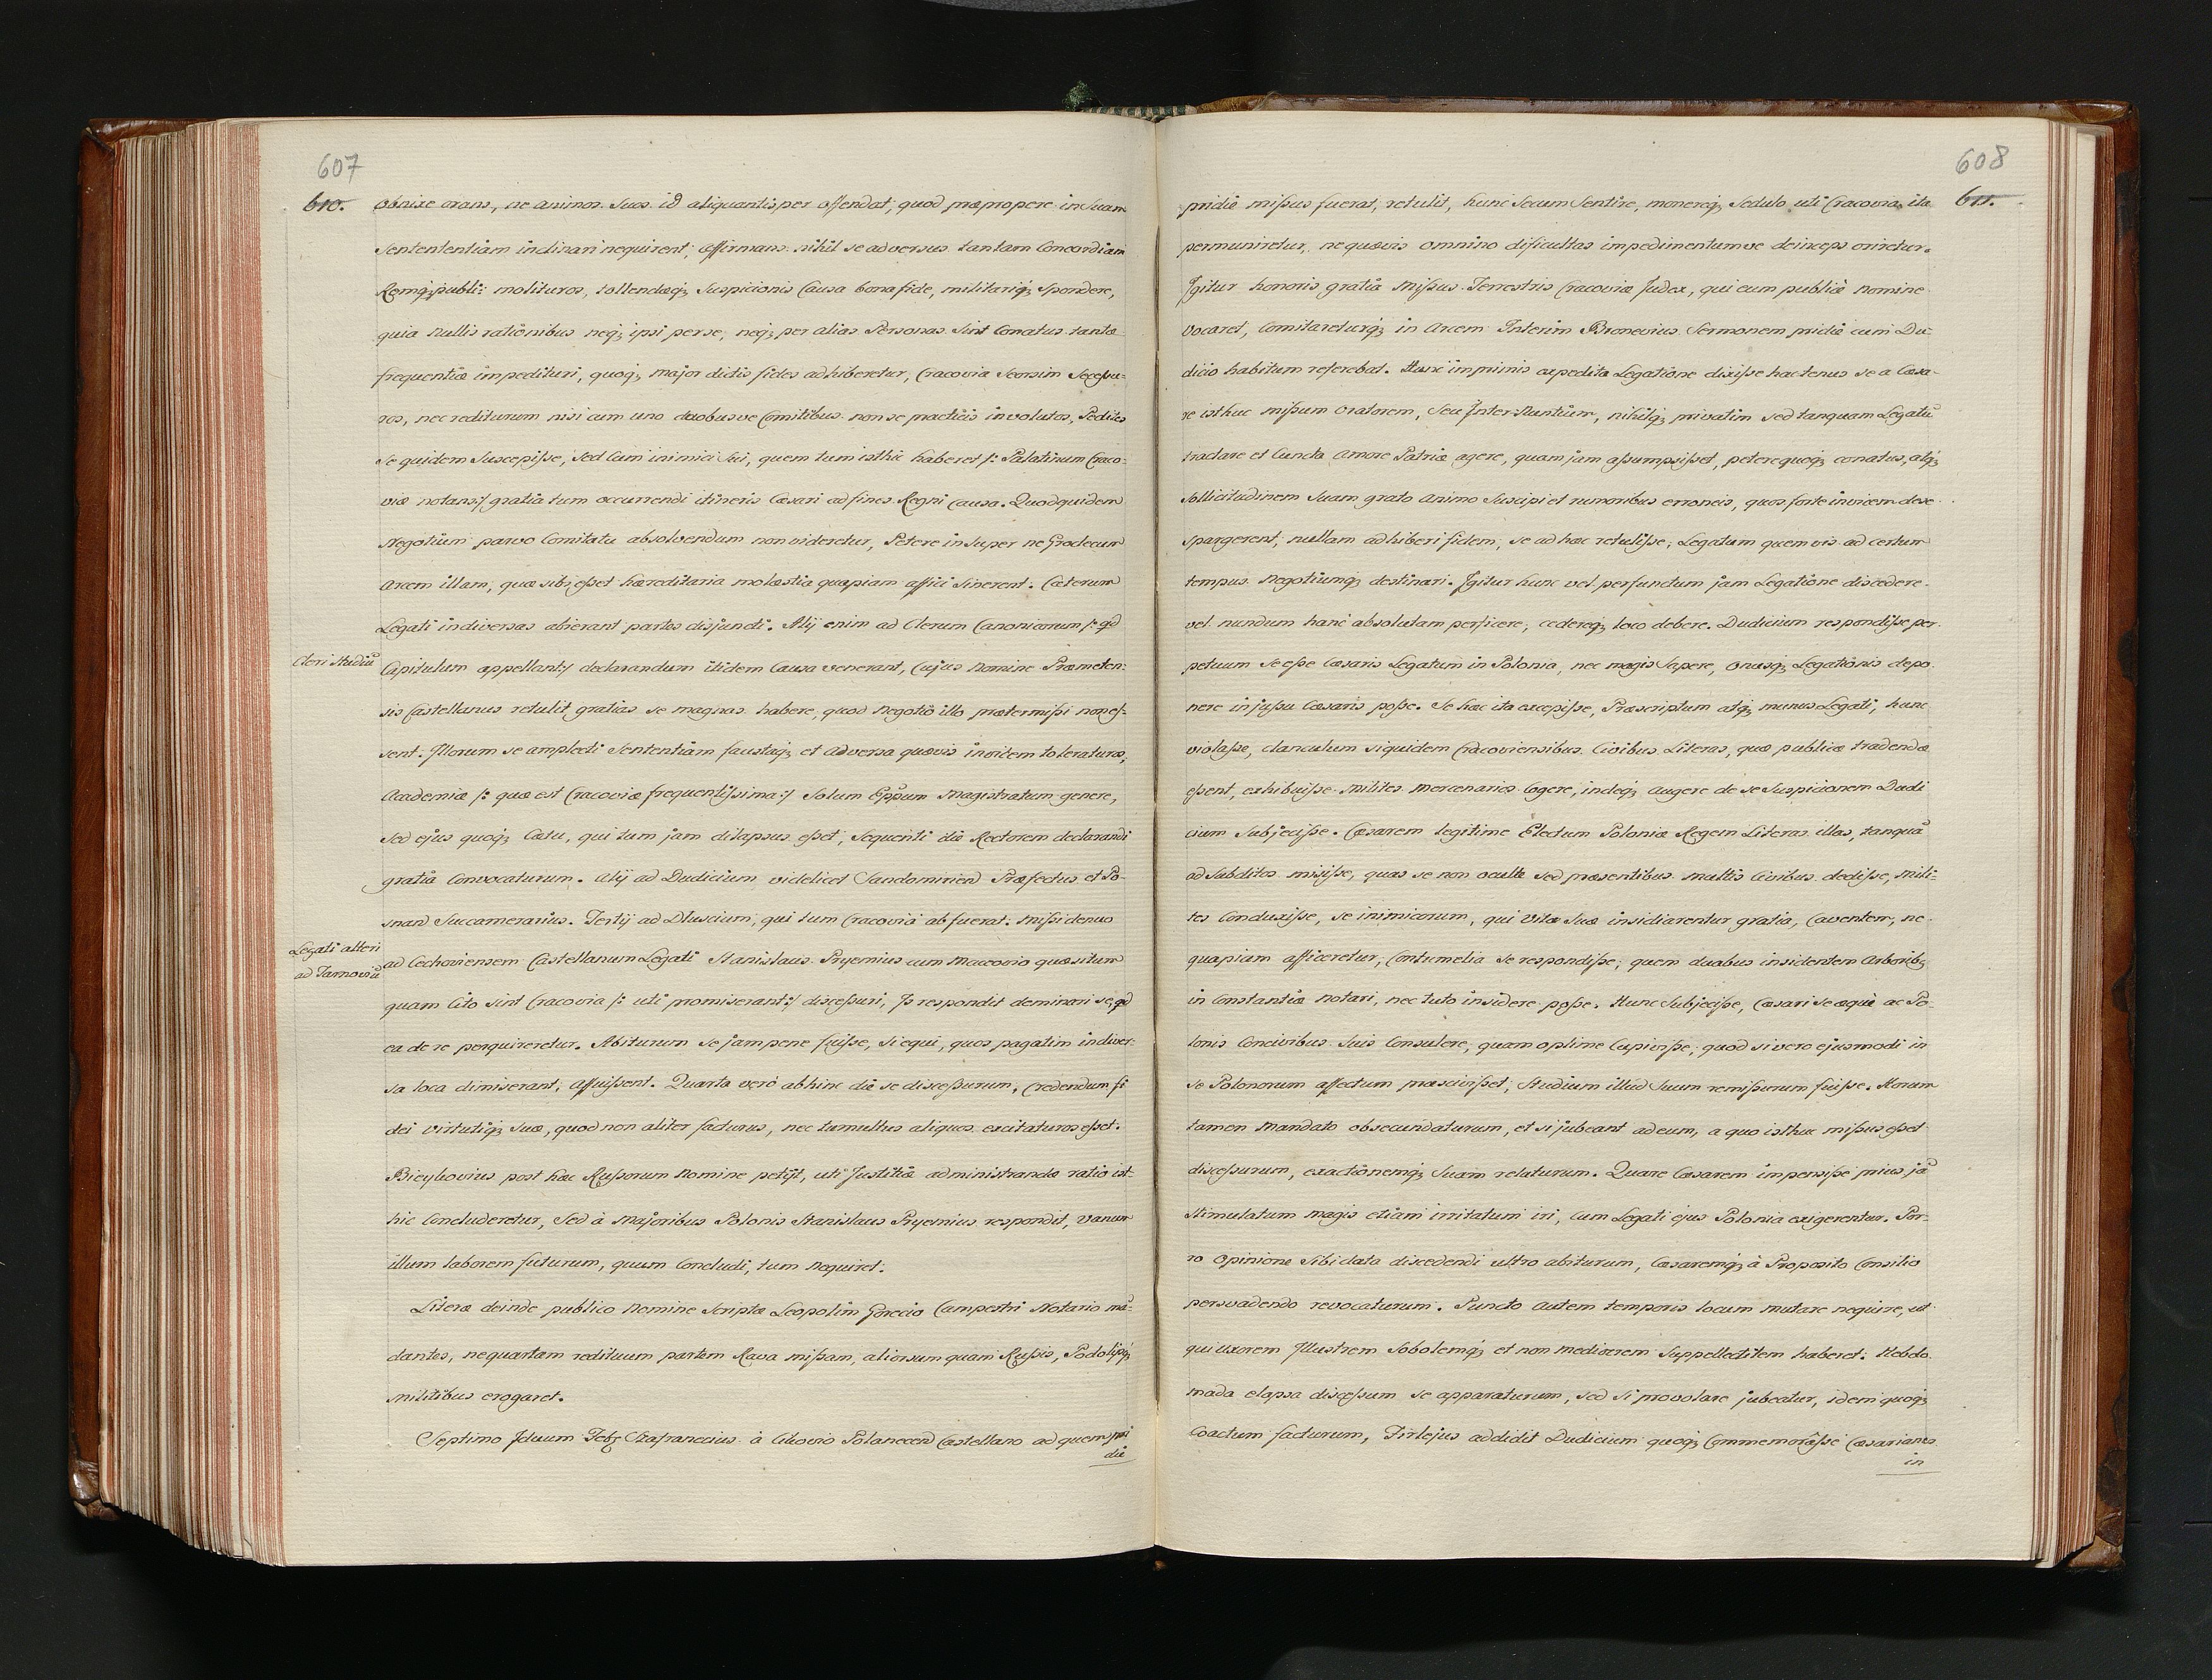 607
610.
obnixe orans, ne animos suos id aliquantisper offendat, quod præpropere in Suam
Sentententiam inclinari nequirent, affirmans nihil se adversus tantam Concordiam
Remq; publi: molituros, tollendæq; Suspicionis Causa bona fide, militariq; Spondere,
quia nullis rationibus neq; ipsi per se, neq; per alias Personas Sint Conatus tantæ
frequentiæ impedituri, quoq; major dictis fides adhiberetur, Cracovia Seorsim Secessu-
ros, nec rediturum nisi cum uno duobusve Comitibus non se practicis involutos, Pedites
Se quidem Suscepisse, Sed Cum inimici Sui, quem tum isthic haberet /: Palatinum Craco-
viæ notans :/ gratia tum occurrendi itineris Cæsari ad fines Regni Causa. Quod quidem
Negotium parvo Comitatu absolvendum non videretur, Petere in Super ne Grodecum
Arcem illam, quæ sibi esset hæreditaria molæstia quapiam affici Sinerent. Cæterum
Legati in diversas abierant partes disjuncti. Alij enim ad Clerum Canonicorum /: qd
Cleri Studiū
Capitulum appellant :/ declarandum itidem Causa venerant, Cujus Nomine Præmeten-
sis Castellanus retulit gratias se magnas habere, quod Negotio illo prætermissi non es-
sent. Illorum se amplecti Sententiam faustaq; et adversa quævis invicem toleraturos,
Academiæ /: quæ est Cracoviæ frequentissima :/ Solum Eppum Magistratum genere,
Sed ejus quoq; Cætu, qui tum jam dilapsus esset, Sequenti die Rectorem declarandi
gratia Convocaturum. Alij ad Dudicium videlicet Sandomirien Præfectus et Po-
snan Succamerarius. Tertij ad Dluscium, qui tum Cracovia abfuerat. Missi denuo
Legati alteri
ad Tarnoviū
ad Cechoviensem Castellanum Legati Stanislaus Pryemius cum Maceovio quæsitum
quam Cito sint Cracovia /: uti promiserant :/ discessuri, Is respondit demirari se, qd
ea de re perquireretur. Abiturum se jam pene fuisse, si equi, quos pagatim in diver-
sa loca dimiserant, affuissent. Quarta vero abhinc die se discessurum, Credendum fi
dei virtutiq; Suæ, quod non aliter facturus, nec tumultus aliquos excitaturos esset.
Bieykovius post hæc Russorum Nomine petijt, uti Justitiæ administrandæ ratio ist-
hic Concluderetur, Sed à Majoribus Polonis Stanislaus Pryemius respondit, Vanum
illum laborem futurum, quum Concludi, tum nequiret.
Literæ deinde publico Nomine Scriptæ Leopolim Grecio Campestri Notario mā-
dantes, ne quartam redituum partem Rava missam, aliorsum quam Russis, Podolijsq;
Militibus erogaret.
Septimo Iduum Feb; Szafranecius à Cikovio Polanecen Castellano ad quem pri
die
608
611.
pridie missus fuerat, retulit, hunc Secum Sentire, monereq; Sedulo uti Cracovia ita
permuniretur, ne quævis omnino dificultas impedimentumve deinceps oriretur.
Igitur honoris gratia Missus Terrestris Cracoviæ Judex, qui eum publicè Nomine
vocaret, Comitareturq; in Arcem Interim Bronevius Sermonem pridie cum Du-
dicio habitum referebat. Hunc imprimis expedita Legatione dixisse hactenus se a Cæsa-
re isthuc missum Oratorem, seu Inter Nuntium, nihilq; privatim sed tanquam Legatū
tractare et Cuncta Amore Patriæ agere, quam jam assumpsisset, petere quoq; conatus, atq;
sollicitudinem Suam grato Animo Suscipi et rumoribus erroneis, quos forte invicem de se
spargerent, nullam adhiberi fidem, se ad hæc retulisse, Legatum quem vis ad certum
tempus Negotiumq; destinari. Igitur hunc vel perfunctum jam Legatione discedere
vel nundum hanc absolutam perficere, cedereq; loco debere. Dudicium respondisse per-
petuum se esse Cæsaris Legatum in Polonia, nec magis Sapere, onusq; Legationis depo-
nere injussu Cæsaris posse. Se hæc ita excepisse, Præscriptum atq; munus Legati, hunc
violasse, clanculum siquidem Cracoviensibus Civibus Literas, quæ publice tradendæ
essent, exhibuisse Milites Mercenarios Cogere, indeq; Augere de se Suspicionem Dudi
cium Subjecisse. Cæsarem legitime Electum Poloniæ Regem Literas illas, tanquā
ad Subditos misisse, quas se non oculte Sed præsentibus Multis Civibus dedisse, Mili-
tes Conduxisse, se inimicorum, qui Vitæ Suæ insidiarentur gratia, Caventem, ne
quapiam afficeretur, Contumelia Se respondisse, quem duabus insidentem Arborib;
in Constantiæ Notari, nec tuto insidere posse. Hunc Subjecisse, Cæsari se æquè ac Po-
lonis Concivibus Suis Consulere, quam optime Cupivisse, quod si vero ejusmodi in
Se Polonorum affectum præscivisset, Studium illud Suum remissurum fuisse. Horum
tamen Mandato obsecundaturum, et si jubeant ad eum, a quo isthuc missus esset
discessurum, exactionemq; Suam relaturum. Quare Cæsarem impensisse prius jā
Stimulatum magis etiam irritatum iri, Cum Legati ejus Polonia exigerentur. Por-
ro Opinione Sibi data discedendi ultro abiturum, Cæsaremq; à Proposito Consilio
persvadendo revocaturum. Puncto Autem temporis locum mutare nequire, ut
qui uxorem Illustrem Sobolemq; et non mediocrem Suppellectilem haberet. Hebdo-
mada elapsa discessum se apparaturum, Sed Si provolare jubeatur, idem quoq;
Coactum facturum, Firlejus addidit Dudicium quoq; Commemorasse Cæsarianos
in